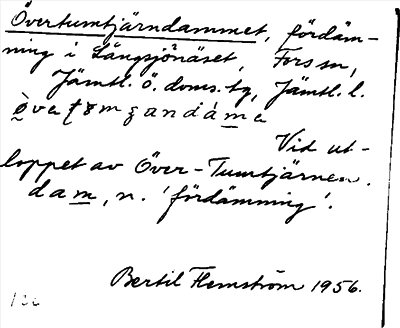 Övertumtjärndammet, fördäm-
ning i Långsjönäset, Fors sn,
Jämtl. ö. doms. tg, Jämtl. l.
Vid ut-
loppet av Över-Tumtjärnen.
dam, n. 'fördämning'.
Bertil Flemström 1956.